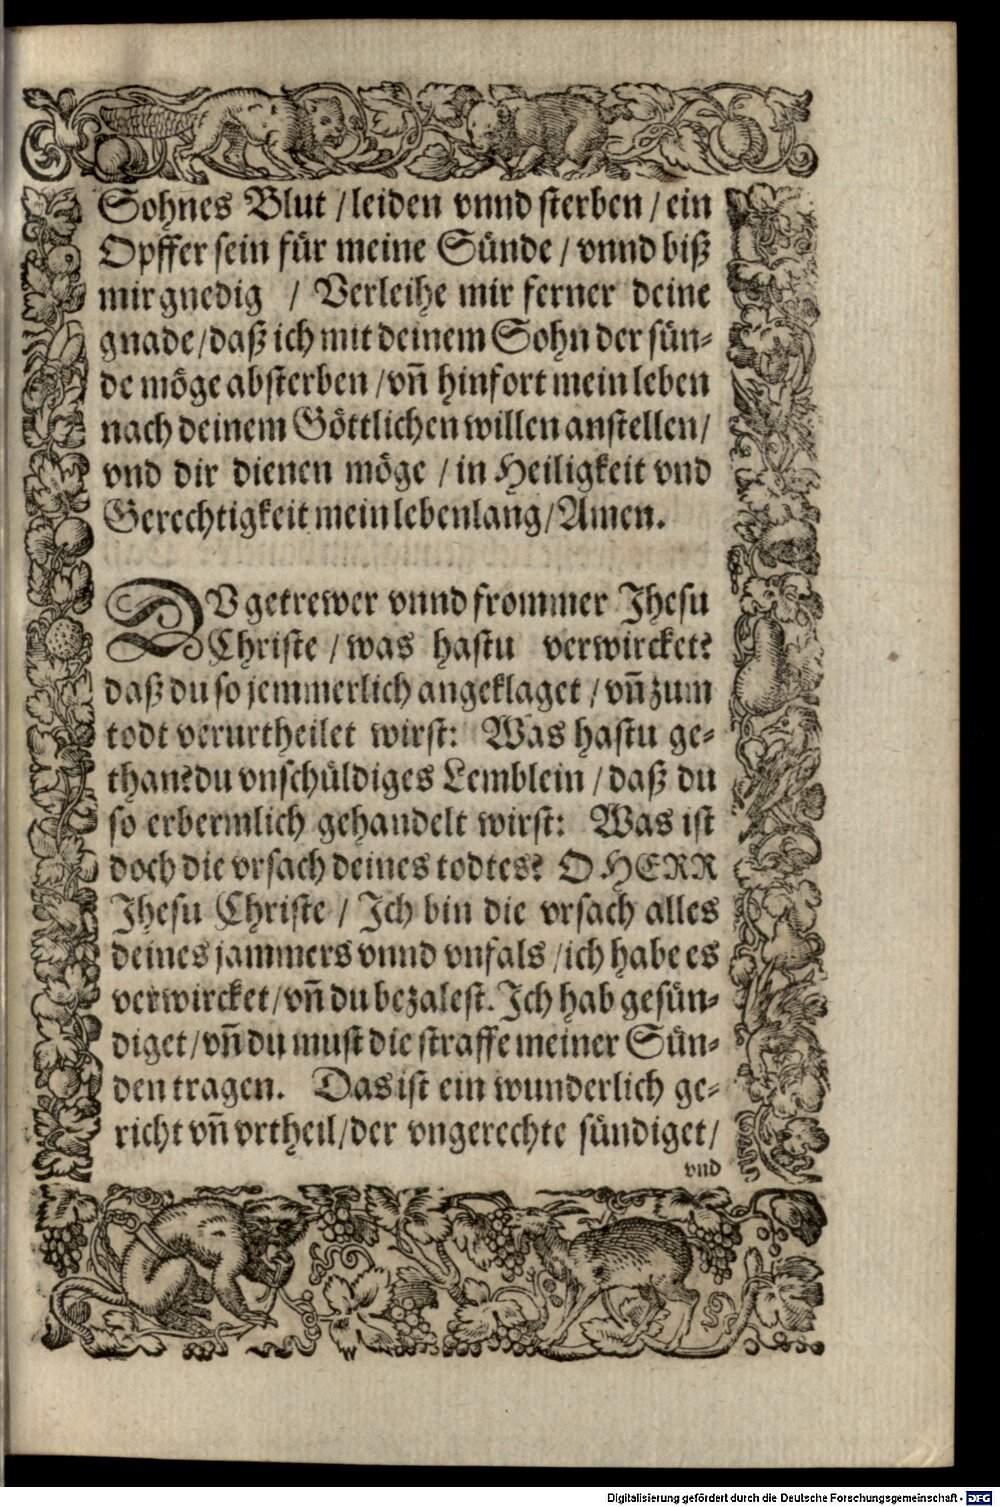 Sohnes Blut / leiden vnnd sterben / ein
Opffer sein für meine Sünde / vnnd biß
mir gnedig / Verleihe mir ferner deine
gnade / daß ich mit deinem Sohn der sün⸗
de möge absterben / vñ hinfort mein leben
nach deinem Göttlichen willen anstellen /
vnd dir dienen möge / in Heiligkeit vnd
Gerechtigkeit mein lebenlang / Amen.
DV getrewer vnnd frommer Jhesu
Christe / was hastu verwircket?
daß du so jemmerlich angeklaget / vñ zum
todt verurtheilet wirst: Was hastu ge⸗
than? du vnschüldiges Lemblein / daß du
so erbermlich gehandelt wirst: Was ist
doch die vrsach deines todtes? O HERR
Jhesu Christe / Jch bin die vrsach alles
deines jammers vnnd vnfals / ich habe es
verwircket / vñ du bezalest. Jch hab gesün⸗
diget / vñ du must die straffe meiner Sün⸗
den tragen. Das ist ein wunderlich ge⸗
richt vñ vrtheil / der vngerechte sündiget /
vnd
Digitalisierung gefördert durch die Deutsche Forschungsgemeinschaft - DFG